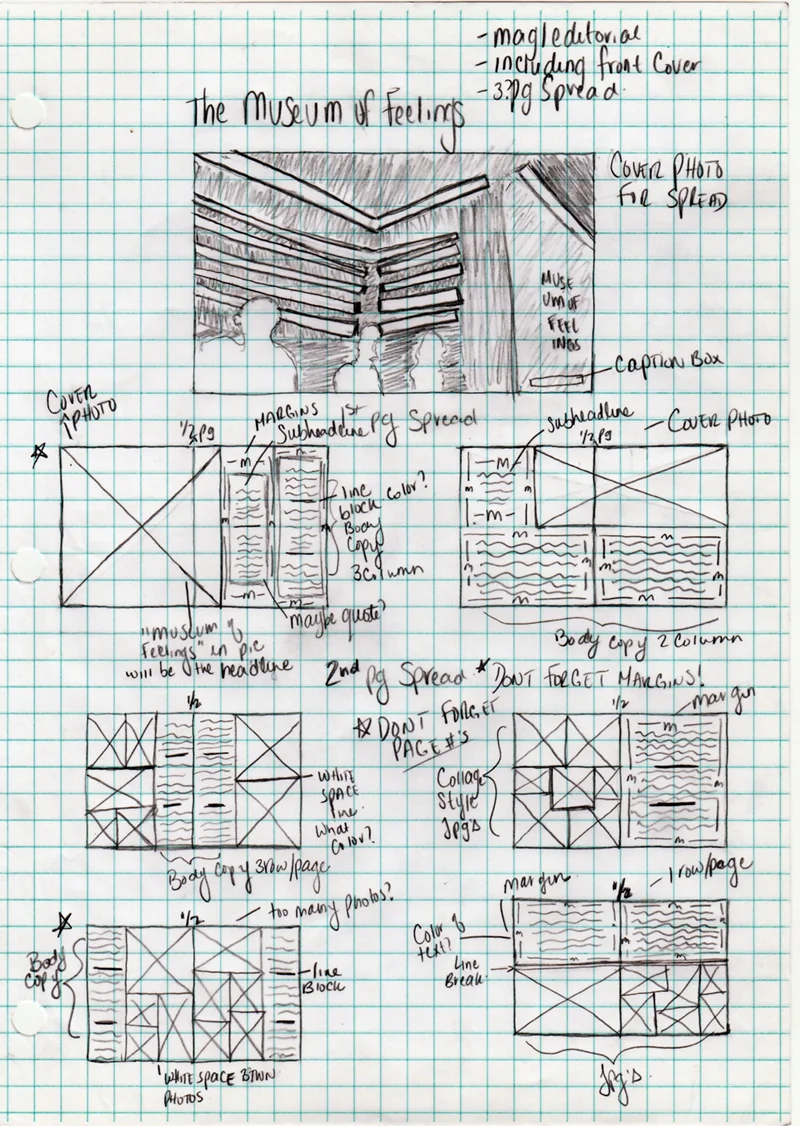 - mag/editorial
- including front Cover
- 3?pg Spread
The Museum of Feelings
COVER PHOTO
FOR SPREAD
MUSE
UM OF
FEEL
INGS
CAPTION BOX
COVER
PHOTO
1/2 pg
MARGINS
Subheadline
1st pg Spread
line
block color?
Body
Copy
3column
maybe quote?
"museum of
Feelings" in pic
will be the headline
subheadline
1/2 pg
- COVER PHOTO
m
Body copy 2 column
2nd pg Spread
* DONT FORGET MARGINS!
DONT FORGET
PAGE #'s
1/2
WHITE
SPACE
line.
What
Color?
Body copy 3row/page
1/2
margin
Collage
Style
Jpg's
m
1/2
too many photos?
Body
Copy
line
Block
WHITE SPACE BTWN
PHOTOS
margin
1/2
1 row/page
Color of
text?
line
Break
m
Jpg's